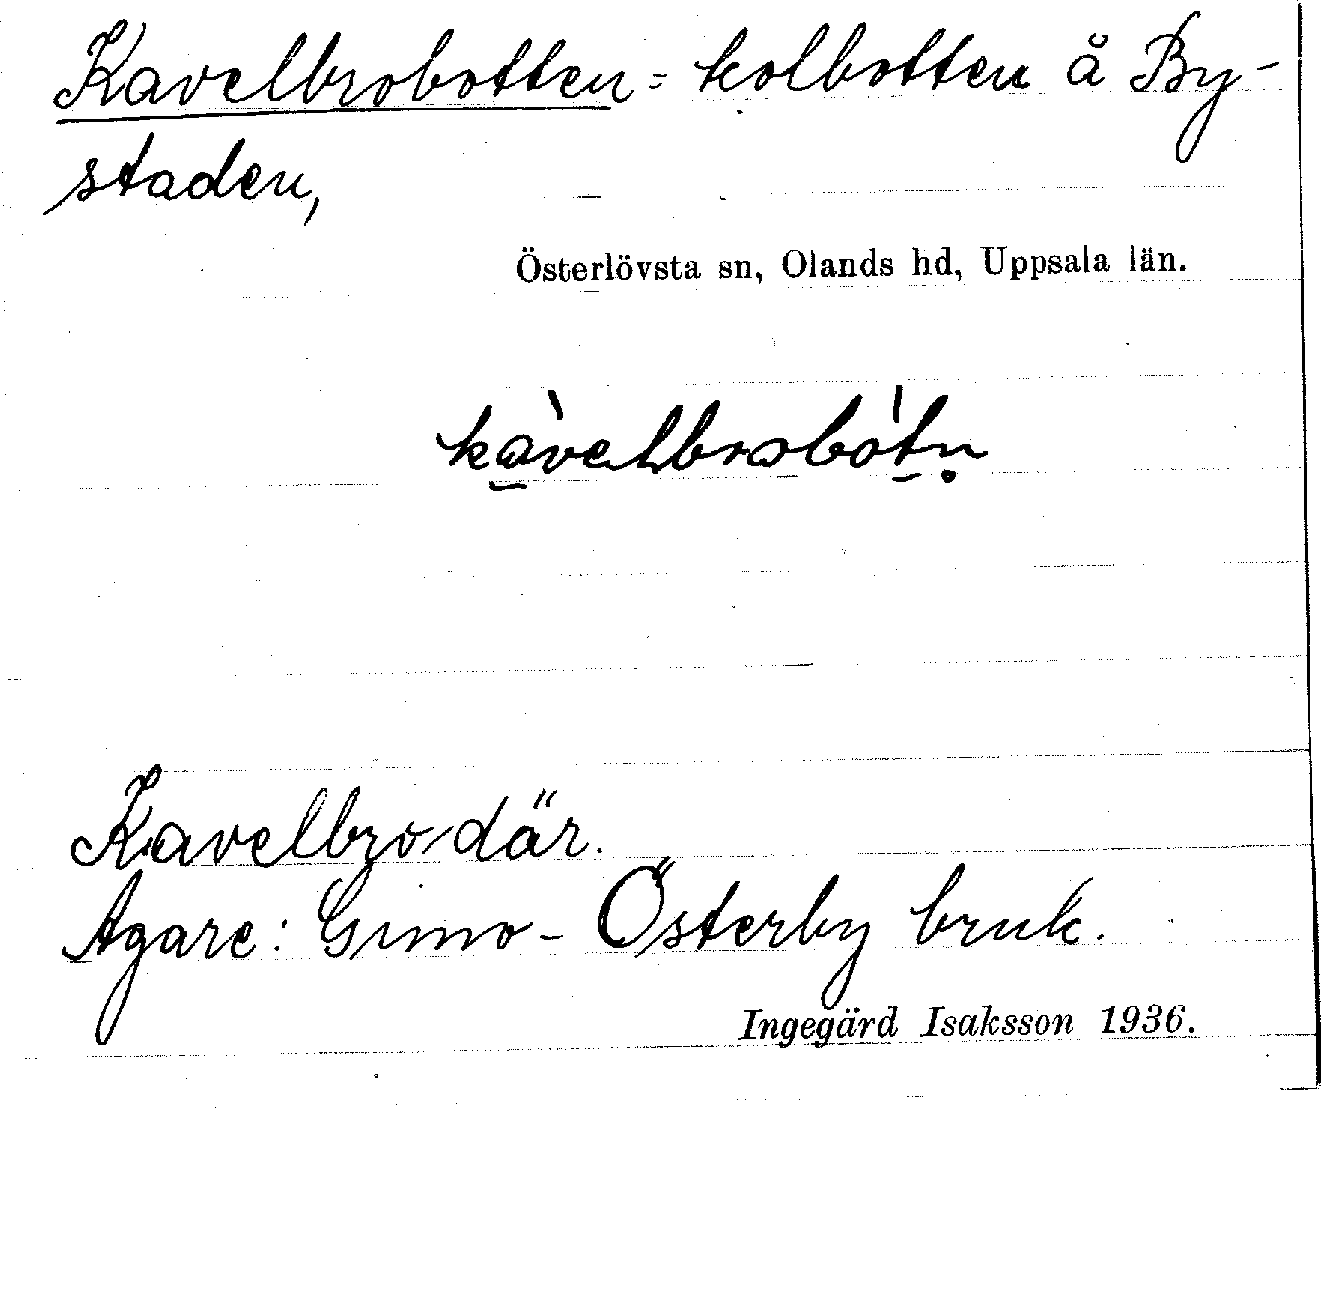 Kavelbrobotten = kolbotten å By-
staden,
Österlövsta sn, Olands hd, Uppsala län.
kàvelbrobòtn̥
Kavelbro där.
Ägare: Gimo - Österby bruk.
Ingegärd Isaksson 1936.